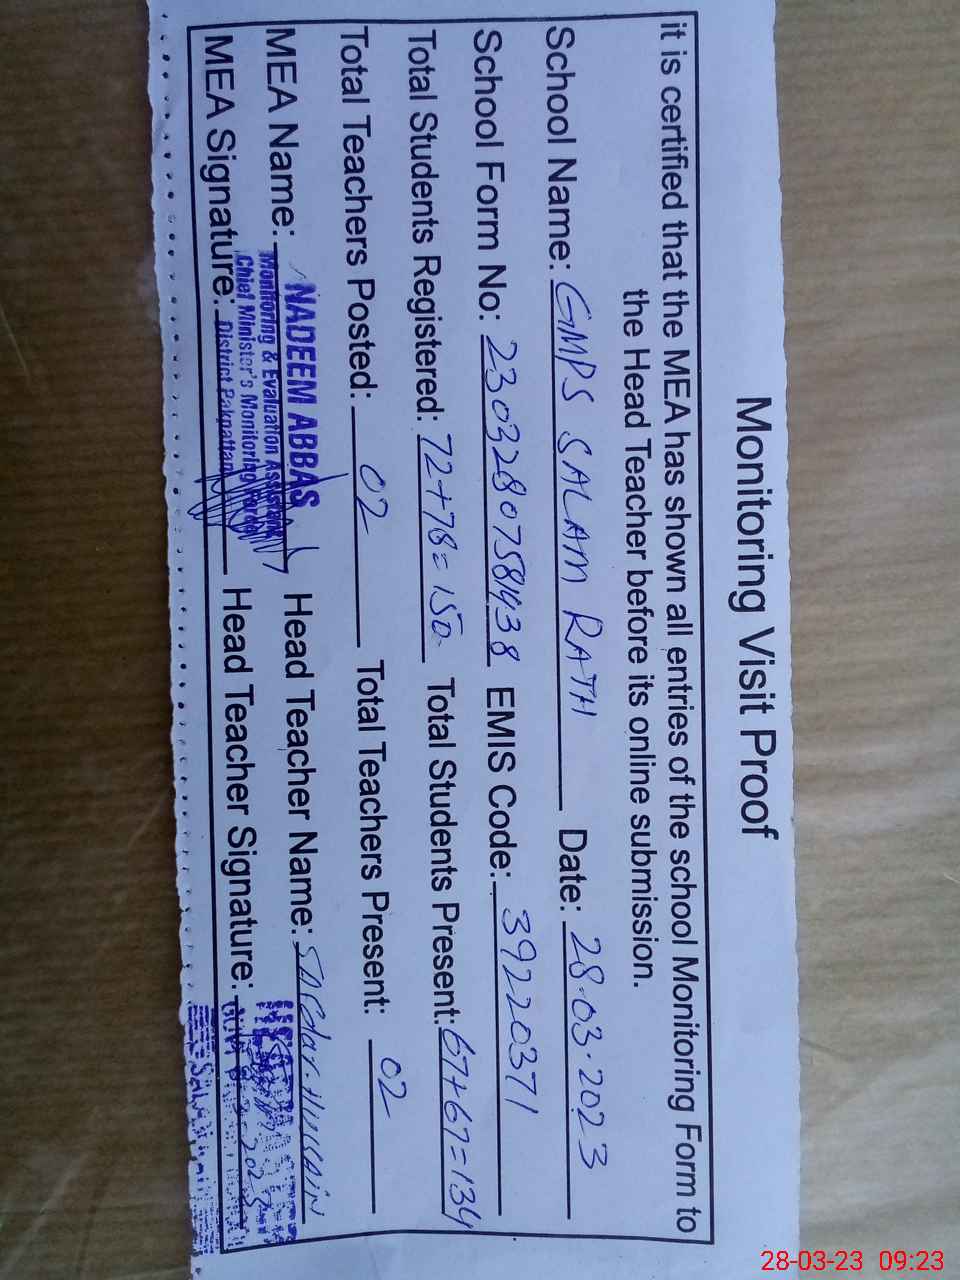 Monitoring Visit Proof
it is certified that the MEA has shown all entries of the school Monitoring Form to
the Head Teacher before its online submission.
School Name: GMPS SALAM RATH Date: 28.03.2023
School Form No: 23032807581438 EMIS Code: 39220371
Total Students Registered: 72+78=150 Total Students Present: 67+67=134
Total Teachers Posted: 02 Total Teachers Present: 02
MEA Name: NADEEM ABBAS Head Teacher Name: Sardar Hussain
Monitoring & Evaluation Assistant
Chief Minister's Monitoring Force
MEA Signature: District Pakpattan Head Teacher Signature:
28-03-23 09:23